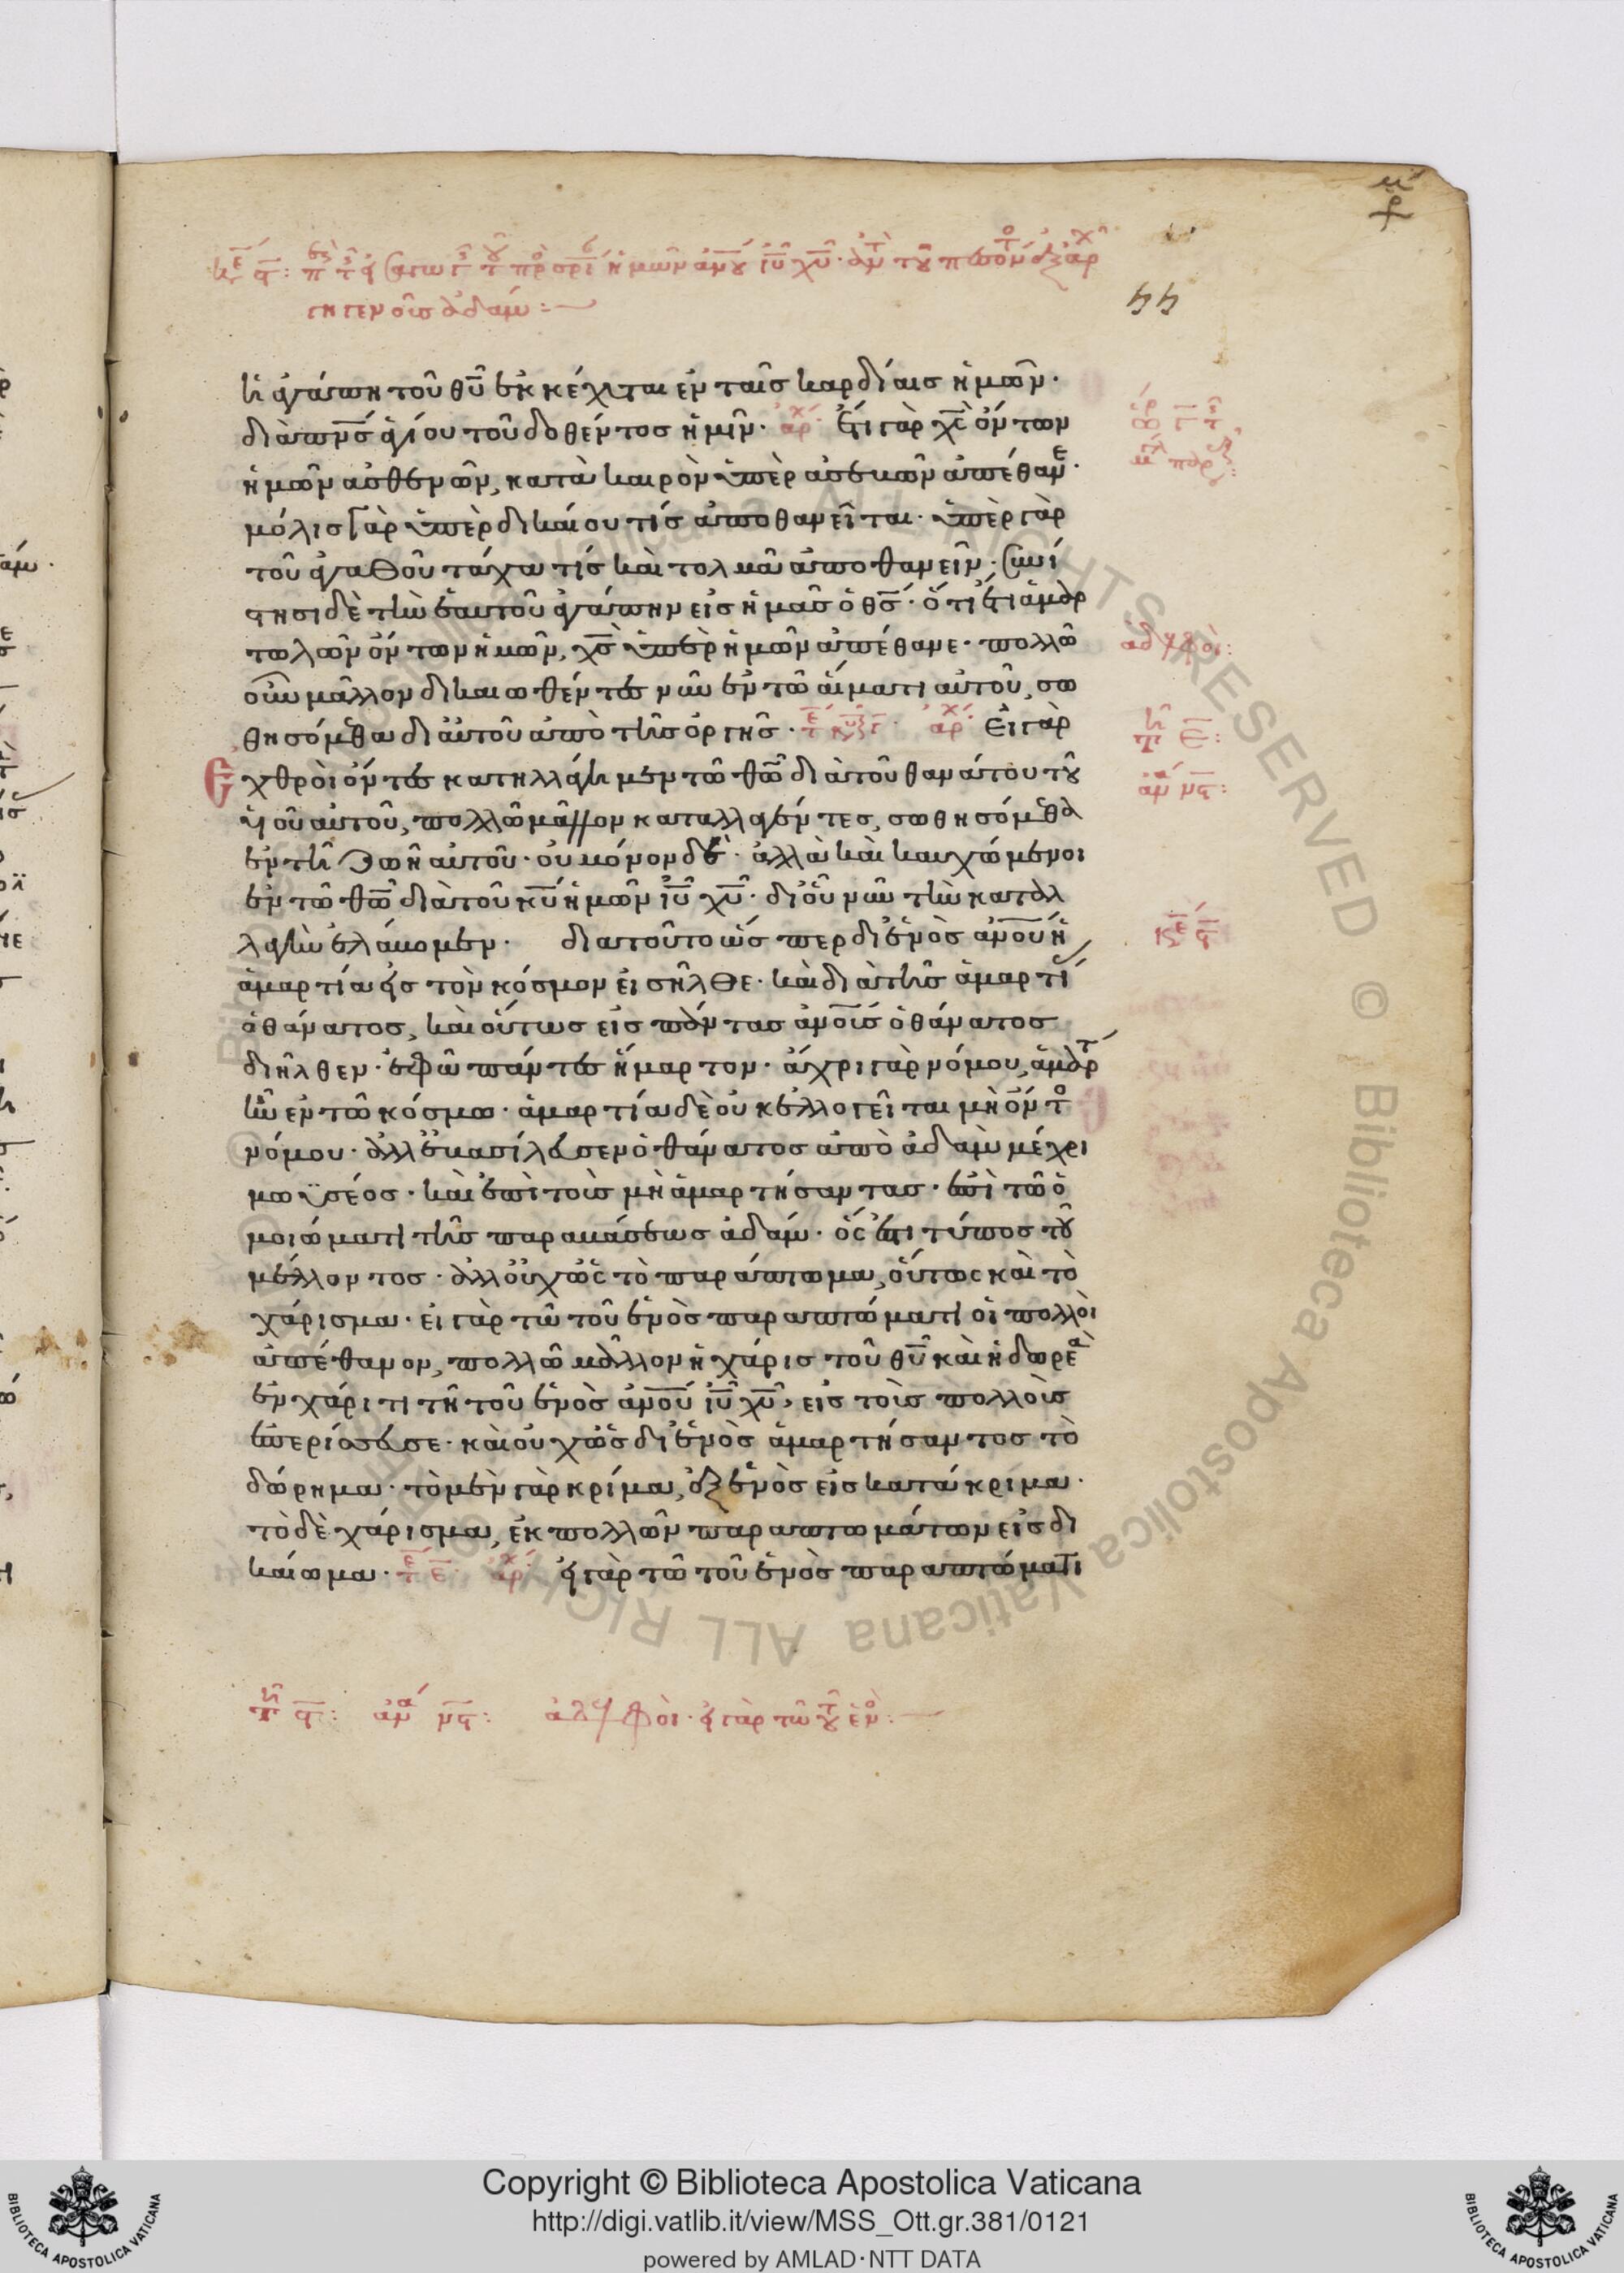 ἡ ἀγάπη τοῦ θῦ ἐκκέχυται ἐν ταῖς καρδίαις ἡμῶν·
διὰ πνς ἁγίου τοῦ δοθέντος ἡμῖν· ἀρχ Ἔτι γὰρ χς ὄντων
ἡμῶν ἀσθενῶν, κατὰ καιρὸν ὑπὲρ ἀσεβῶν ἀπέθανε·
μόλις γὰρ ὑπὲρ δικαίου τίς ἀποθανεῖται· ὑπὲρ γὰρ
τοῦ ἀγαθοῦ τάχα τίς καὶ τολμᾶ ἀποθανεῖν· συνί
στησι δὲ τὴν ἑαυτοῦ ἀγάπην εἰς ἡμᾶς ὁ θς· ὅτι ἔτι ἁμαρ
τωλῶν ὄντων ἡμῶν, χς ὑπὲρ ἡμῶν ἀπέθανε· πολλῶ
οὖν μᾶλλον δικαιωθέντες νῦν ἐν τῶ αἵματι αὐτοῦ, σω
θησόμεθα δι αὐτοῦ ἀπὸ τῆς ὀργῆς· ἀρχ Εἰ γὰρ
ἐχθροὶ ὄντες κατηλλάγημεν τῶ θῶ διὰ τοῦ θανάτου τοῦ
υἱοῦ αὐτοῦ, πολλῶ μᾶλλον καταλλαγέντες, σωθησόμεθα
ἐν τῆ ζωῆ αὐτοῦ· οὐ μόνον δὲ· ἀλλὰ καὶ καυχώμενοι
ἐν τῶ θῶ διὰ τοῦ κῦ ἡμῶν ἰῦ χῦ· δι οὗ νῦν τὴν καταλ
λαγὴν ἐλάβομεν· διατοῦτο ὥσπερ δι ἑνὸς ἀνου ἡ
ἁμαρτία εἰς τὸν κόσμον εἰσῆλθε· καὶ διὰ τῆς ἁμαρτί
ὁ θάνατος, καὶ οὕτως εἰς πάντας ἀνους ὁ θάνατος
διῆλθεν· ἐφ ὧ πάντες ἥμαρτον· ἄχρι γὰρ νόμου, ἁμαρτ
ἦν ἐν τῶ κόσμω· ἁμαρτία δὲ οὐκ ἐλλογεῖται μὴ ὄντο
νόμου· ἀλλ ἐβασίλευσεν ὁ θάνατος ἀπὸ ἀδὰμ μέχρι
μωϋσέος· καὶ ἐπὶ τοὺς μὴ ἁμαρτήσαντας· ἐπὶ τῶ ὁ
μοιώματι τῆς παραβάσεως ἀδάμ· ὅς ἐστι τύπος τοῦ
μέλλοντος· ἀλλ οὐχ ὡς τὸ παράπτωμα, οὕτως καὶ τὸ
χάρισμα· εἰ γὰρ τῶ τοῦ ἑνὸς παραπτώματι οἱ πολλοὶ
ἀπέθανον, πολλῶ μᾶλλον ἡ χάρις τοῦ θῦ καὶ ἡ δωρεὰ
ἐν χάριτι τῆ τοῦ ἑνὸς ἀνου ἰῦ χῦ, εἰς τοὺς πολλοὺς
ἐπερίσσευσε· καὶ οὐχ ὡς δι ἑνὸς ἁμαρτήσαντος τὸ
δώρημα· τὸ μὲν γὰρ κρίμα, ἐξ ἑνὸς εἰς κατάκριμα·
τὸ δὲ χάρισμα, ἐκ πολλῶν παραπτωμάτων εἰς δι
καίωμα· ἀρχ εἰ γὰρ τῶ τοῦ ἑνὸς παραπτώματι
Copyright © Biblioteca Apostolica Vaticana
http://digi.vatlib.it/view/MSS_Ott.gr.381/0121
powered by AMLAD·NTT DATA